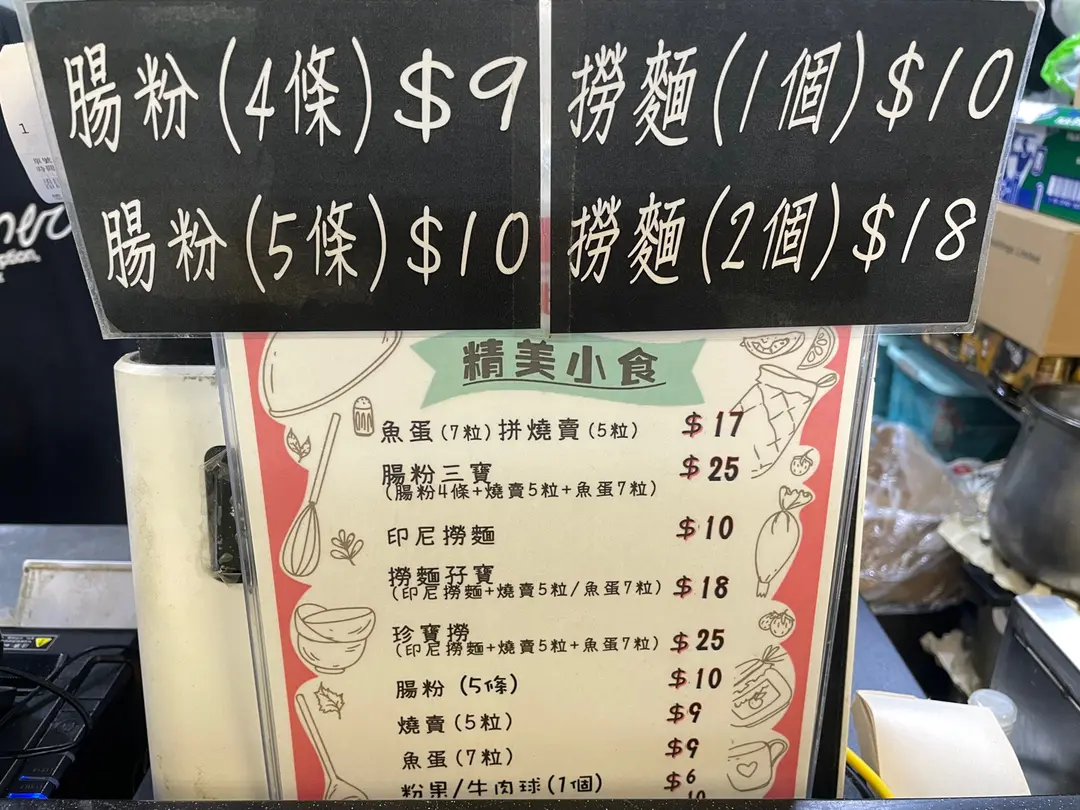 腸粉(4條)$9
腸粉(5條)$10
撈麵(1個)$10
撈麵(2個)$18
精美小食
魚蛋(7粒)拼燒賣(5粒) $17
腸粉三寶 $25
(腸粉4條+燒賣5粒+魚蛋7粒)
印尼撈麵 $10
撈麵孖寶 $18
(印尼撈麵+燒賣5粒/魚蛋7粒)
珍寶撈 $25
(印尼撈麵+燒賣5粒+魚蛋7粒)
腸粉 (5條) $10
燒賣(5粒) $9
魚蛋(7粒) $9
粉果/牛肉球(1個) $6